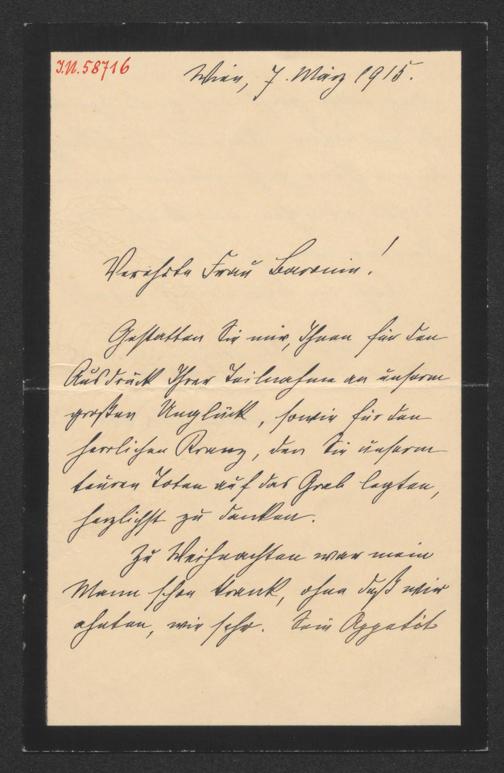 I.N. 58716
Wien, 7. März 1915.
Verehrte Frau Baronin!
Gestatten Sie mir, Ihnen für den
Ausdruck Ihrer Teilnahme an unserm
großen Unglück, sowie für den
herrlichen Kranz, den Sie unserm
teuren Toten auf das Grab legten,
herzlichst zu danken.
Zu Weihnachten war mein
Mann schon krank, ohne daß wir
ahnten, wie sehr. Sein Appetit